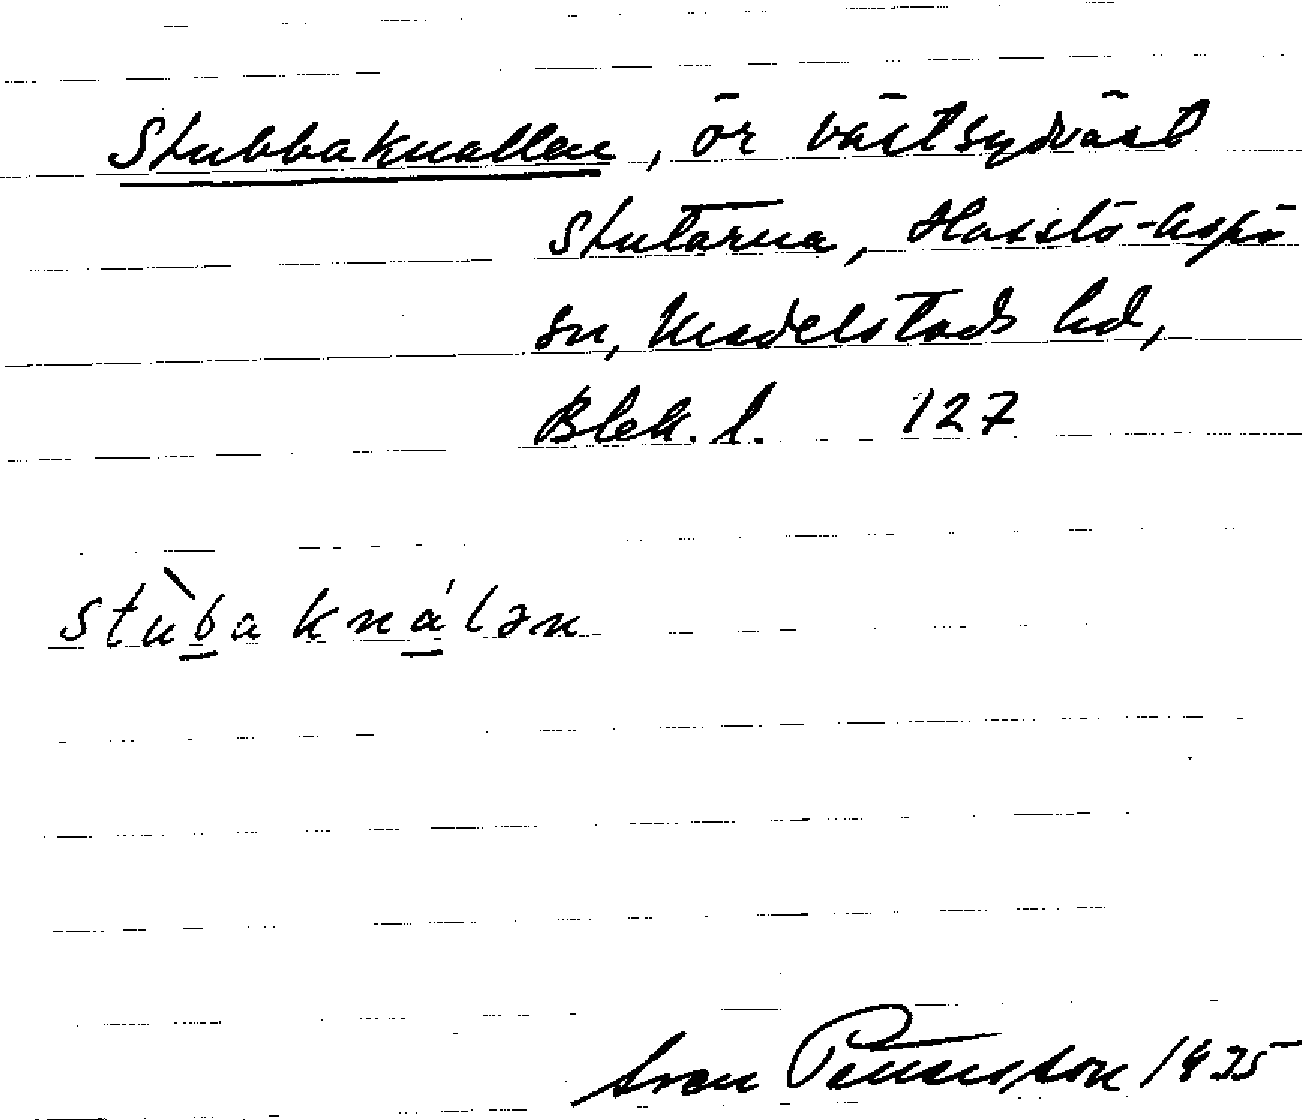 Stubbaknallen, ör västsydväst
Stutarna, Hasslö-Aspö
sn, Medelstads hd,
Blek. l. 127
stùba knálən
Sven 1935